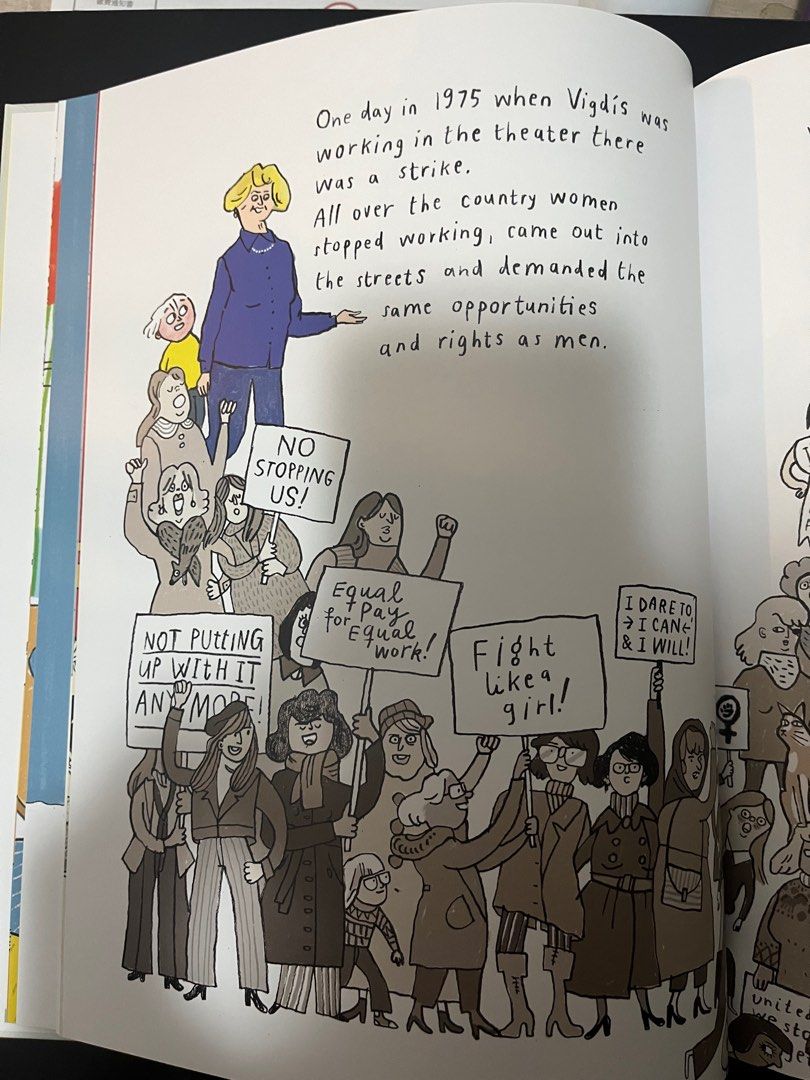 One day in 1975 when Vigdís was
working in the theater there
was a strike.
All over the country women
stopped working, came out into
the streets and demanded the
same opportunities
and rights as men.
NO
STOPPING
US!
Equal
pay
for Equal
work!
NOT PUTTING
UP WITH IT
ANYMORE!
Fight
like a
girl!
I DARE TO
→ I CAN ←
& I WILL!
united
we